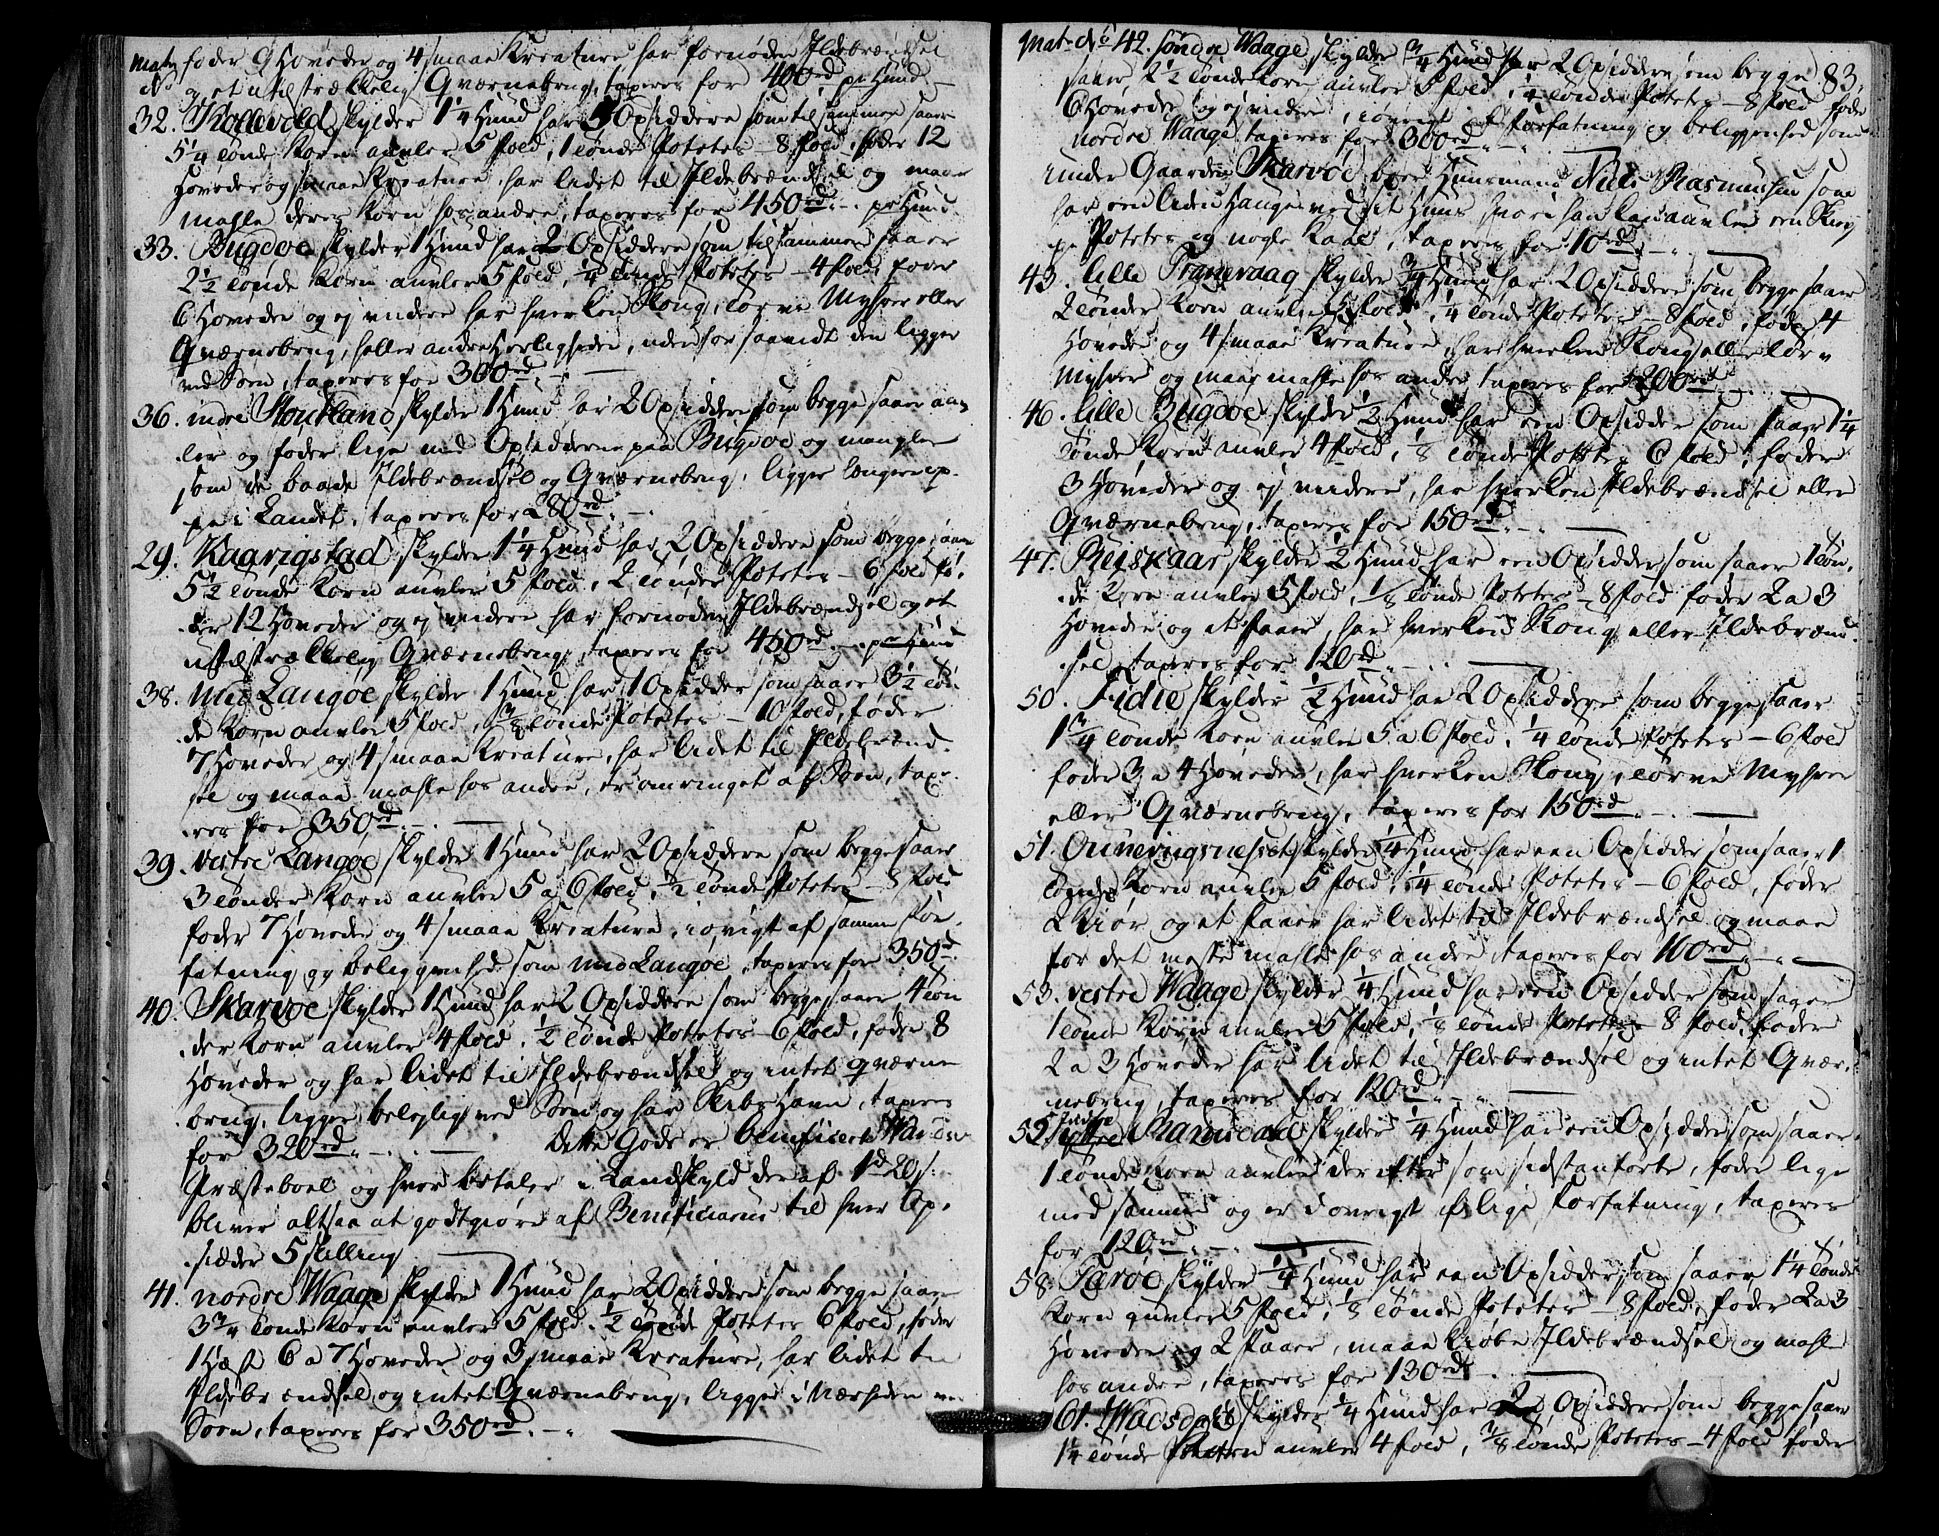 Mat: foder 9 Hoveder og 4 smaae Kreature, har fornøden Ildebrændsel
No og et utilstrækkelig Qværnebrug, taxeres for 400rd pr Hund
32. Kollevold skylder 1 1/4 Hund har 3 Opsiddere som tilsammen saaer
5 1/4 tønde Korn auvler 5 fold, 1 tønde Potetes - 8 fold, føder 12
Hoveder og smaae Kreature har lidet til Ildebrændsel og maae
mahle deres Korn hos andre, taxeres for 450rd pr Hund
33. Bugdøe skylder 1 Hund har 2 Opsiddere som tilsammen saaer
2 1/2 tønde Korn auvler 5 fold, 1/4 tønde Potetes - 4 fold, føder
6 Hoveder og ej videre har hverken Skoug, Torve Myhrer eller
Qværnebrug, heller andre Herligheder, uden for saavidt den ligger
ved Søen, taxeres for 300rd
36. indre Stourland skylder 1 Hund har 2 Opsiddere som begge saaer auv
ler og føder lige med Opsidderne paa Bugdøe og mangler
som de baade Ildebrændsel og Qværnebrug, ligger længere op
pe i Landet, taxeres for 280rd
29. Kaarigstad skylder 1 1/4 Hund har 2 Opsiddere som begge saaer
5 1/2 tønde Korn auvler 5 fold, 2 tønder Potetes - 6 fold fø.
der 12 Hoveder og ej videre har fornøden Ildebrændsel og et
utilstrækkelig Qværnebrug, taxeres for 450rd pr Hund
38. Mid Langøe skylder 1 Hund har 1 Opsidder som saaer 3 1/2 tøn
de Korn auvler 5 fold, 3/8 tønde Potetes - 10 fold, føder
7 Hoveder og 4 smaae Kreature, har lidet til Ildebrænd.
sel og maae mahle hos andre, er omringet af Søen, taxe.
res for 350rd
39. vestre Langøe skylder 1 Hund har 2 Opsiddere som begge saaer
3 tønder Korn auvler 5 a 6 fold, 1/2 tønde Potetes - 8 fold
føder 7 Hoveder og 4 smaae Kreature, i øvrigt af samme For.
fatning og beliggenhed som Mid Langøe, taxeres for 350rd
40. Skarvøe skylder 1 Hund har 2 Opsiddere som begge saaer 4 tøn
der Korn auvler 4 fold, 1/2 tønde Potetes - 6 fold, føder 8
Hoveder og har lidet til Ildebrændsel og intet Qværne
brug, ligger belejlig ved Søen og har Skibs Havn, taxeres
for 320rd Dette Gods er beneficeret
Præsteboel og hver betaler i Landskyld deraf 1d 20s:
bliver altsaa at godtgiøre af Beneficiarius til hver Op.
sidder 5 skilling
41. nordre Waage skylder 1 Hund har 2 Opsiddere som begge saaer
3 3/4 tønde Korn auvler 5 fold, 1/2 tønde Potetes 6 fold, føder
1 Hæst 6 a 7 Hoveder og 3 smaae Kreature, har lidet til
Ildebrændsel og intet Qværnebrug, ligger i Nærheden ved
Søen, taxeres for 350rd
83.
Mat: No 42. søndre Waage skylder 3/4 Hund har 2 Opsiddere som begge
saaer 2 1/2 tønde Korn auvler 5 fold, 1/4 tønde Potetes - 8 fold føde
6 Hoveder og ej videre, i øvrigt af Forfatning og beliggenhed som
nordre Waage taxeres for 300rd
Under Gaarden Skarvøe boer Huusmand Niels Rasmussen som
har een liden Hauge ved sit Huus hvori han kan auvle een Skiep
pe Potetes og nogle Kaal, taxeres for 10rd
43. lille Tranevaag skylder 3/4 Hund har 2 Opsiddere som begge saaer
2 tønder Korn auvler 5 fold, 1/4 tønde Potetes - 8 fold, føder 4
Hoveder og 4 smaae Kreature, har hverken Skoug eller Tørv
Myhrer og maae mahle hos andre taxeres for 200rd
46. lille Bugdøe skylder 1/2 Hund har een Opsidder som saaer 1 1/4
tønde Korn auvler 4 fold, 1/8 tønde Potetes 6 fold, føder
3 Hoveder og ej videre, har hverken Ildebrændsel eller
Qværnebrug, taxeres for 150rd
47. Reiskaar skylder 1/2 Hund har een Opsidder som saaer 1 tøn.
de Korn auvler 5 fold, 1/8 tønde Potetes - 8 fold føder 2 a 3
Hoveder og et Faaer, har hverken Skoug eller Ildebrænd.
sel, taxeres for 120rd
50. Fidie skylder 1/2 Hund har 2 Opsiddere som begge saaer
1 3/4 tønde Korn auvler 5 a 6 fold, 1/4 tønde Potetes - 6 fold
føder 3 a 4 Hoveder, har hverken Skoug, Tørve Myhrer
eller Qværnebrug, taxeres for 150rd
51. skylder 1/4 Hund har een Opsidder som saaer 1
tønde Korn auvler 5 fold, 1/4 tønde Potetes - 6 fold, føder
2 Kiør og et Faaer har lidet til Ildebrændsel og maae
for det meste mahle hos andre taxeres for 100rd
53. vestre Waage skylder 1/4 Hund har een Opsidder som saaer
1 tønde Korn auvler 5 fold, 1/8 tønde Potetes 8 fold, føder
2 a 3 Hoveder har lidet til Ildebrændsel og intet Qvær.
nebrug, taxeres for 120rd
skylder 1/4 Hund har een Opsidder som saaer
1 tønde Korn auvler derefter som sidstanførte, føder lige
med samme og er i øvrigt i lige Forfatning, taxeres
for 120rd
58. Farøe skylder 1/4 Hund har een Opsidder som saaer 1 1/4 tønde
Korn auvler 5 fold, 1/8 tønde Potetes - 8 fold, føder 2 a 3
Hoveder og 2 Faaer, maae kiøbe Ildebrændsel og mahle
hos andre, taxeres for 130rd
61. Waagsdal skylder 1/4 Hund har 2 Opsiddere som begge saaer
1 1/4 tønde Korn auvler 4 fold, 3/8 tønde Potetes - 4 fold føder